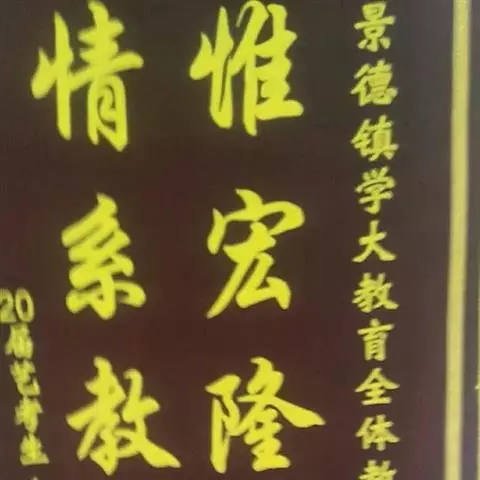 景德镇学大教育全体教
惟宏隆
情系教
20届艺考生